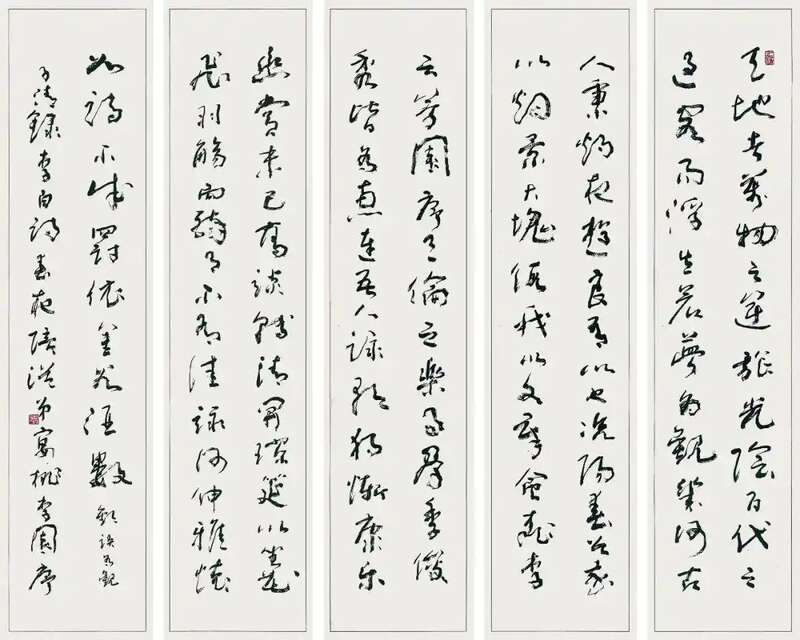 天地者萬物之逆旅光陰百代之
過客而浮生若夢為觀幾何古
人秉燭夜遊良有以也況陽春召我
以烟景大塊假我以文章會桃李
之芳園序天倫之樂事群季俊
秀皆為惠連吾人詠歌獨慚康樂
幽賞未已高談轉清開瓊筵以坐花
飛羽觴而醉月不有佳詠何伸雅懷
如詩不成罰依金谷酒數 歡誤為觀
子清錄李白詩春夜陪從弟宴桃李園序